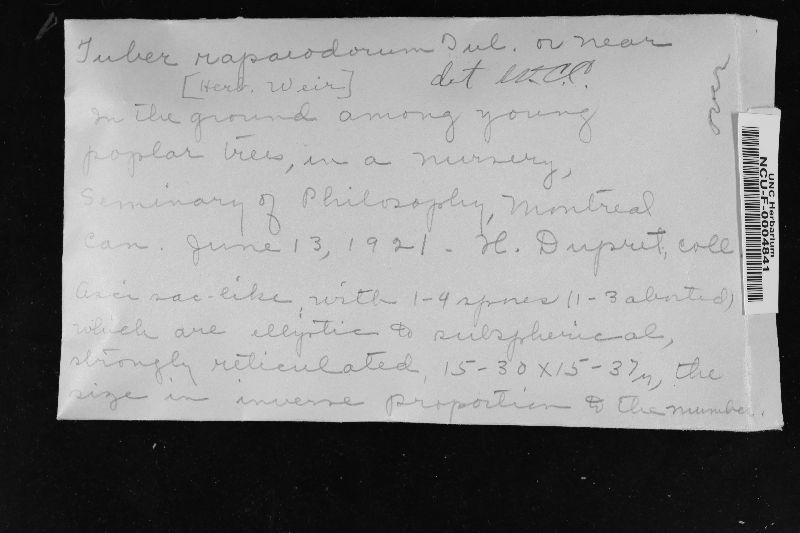 Tuber rapaeodorum Tul. or near
[Herb. Weir] det W.C.C.
In the ground among young
poplar trees, in a nursery,
Seminary of Philosophy, Montreal
Can. June 13, 1921 - H. Dupret, coll
Asci sac-like, with 1-4 spores (1-3 aborted)
which are elliptic to subspherical,
strongly reticulated, 15-30 X 15-37μ, the
size in inverse proportion to the number.
UNC Herbarium
NCU-F-0004841